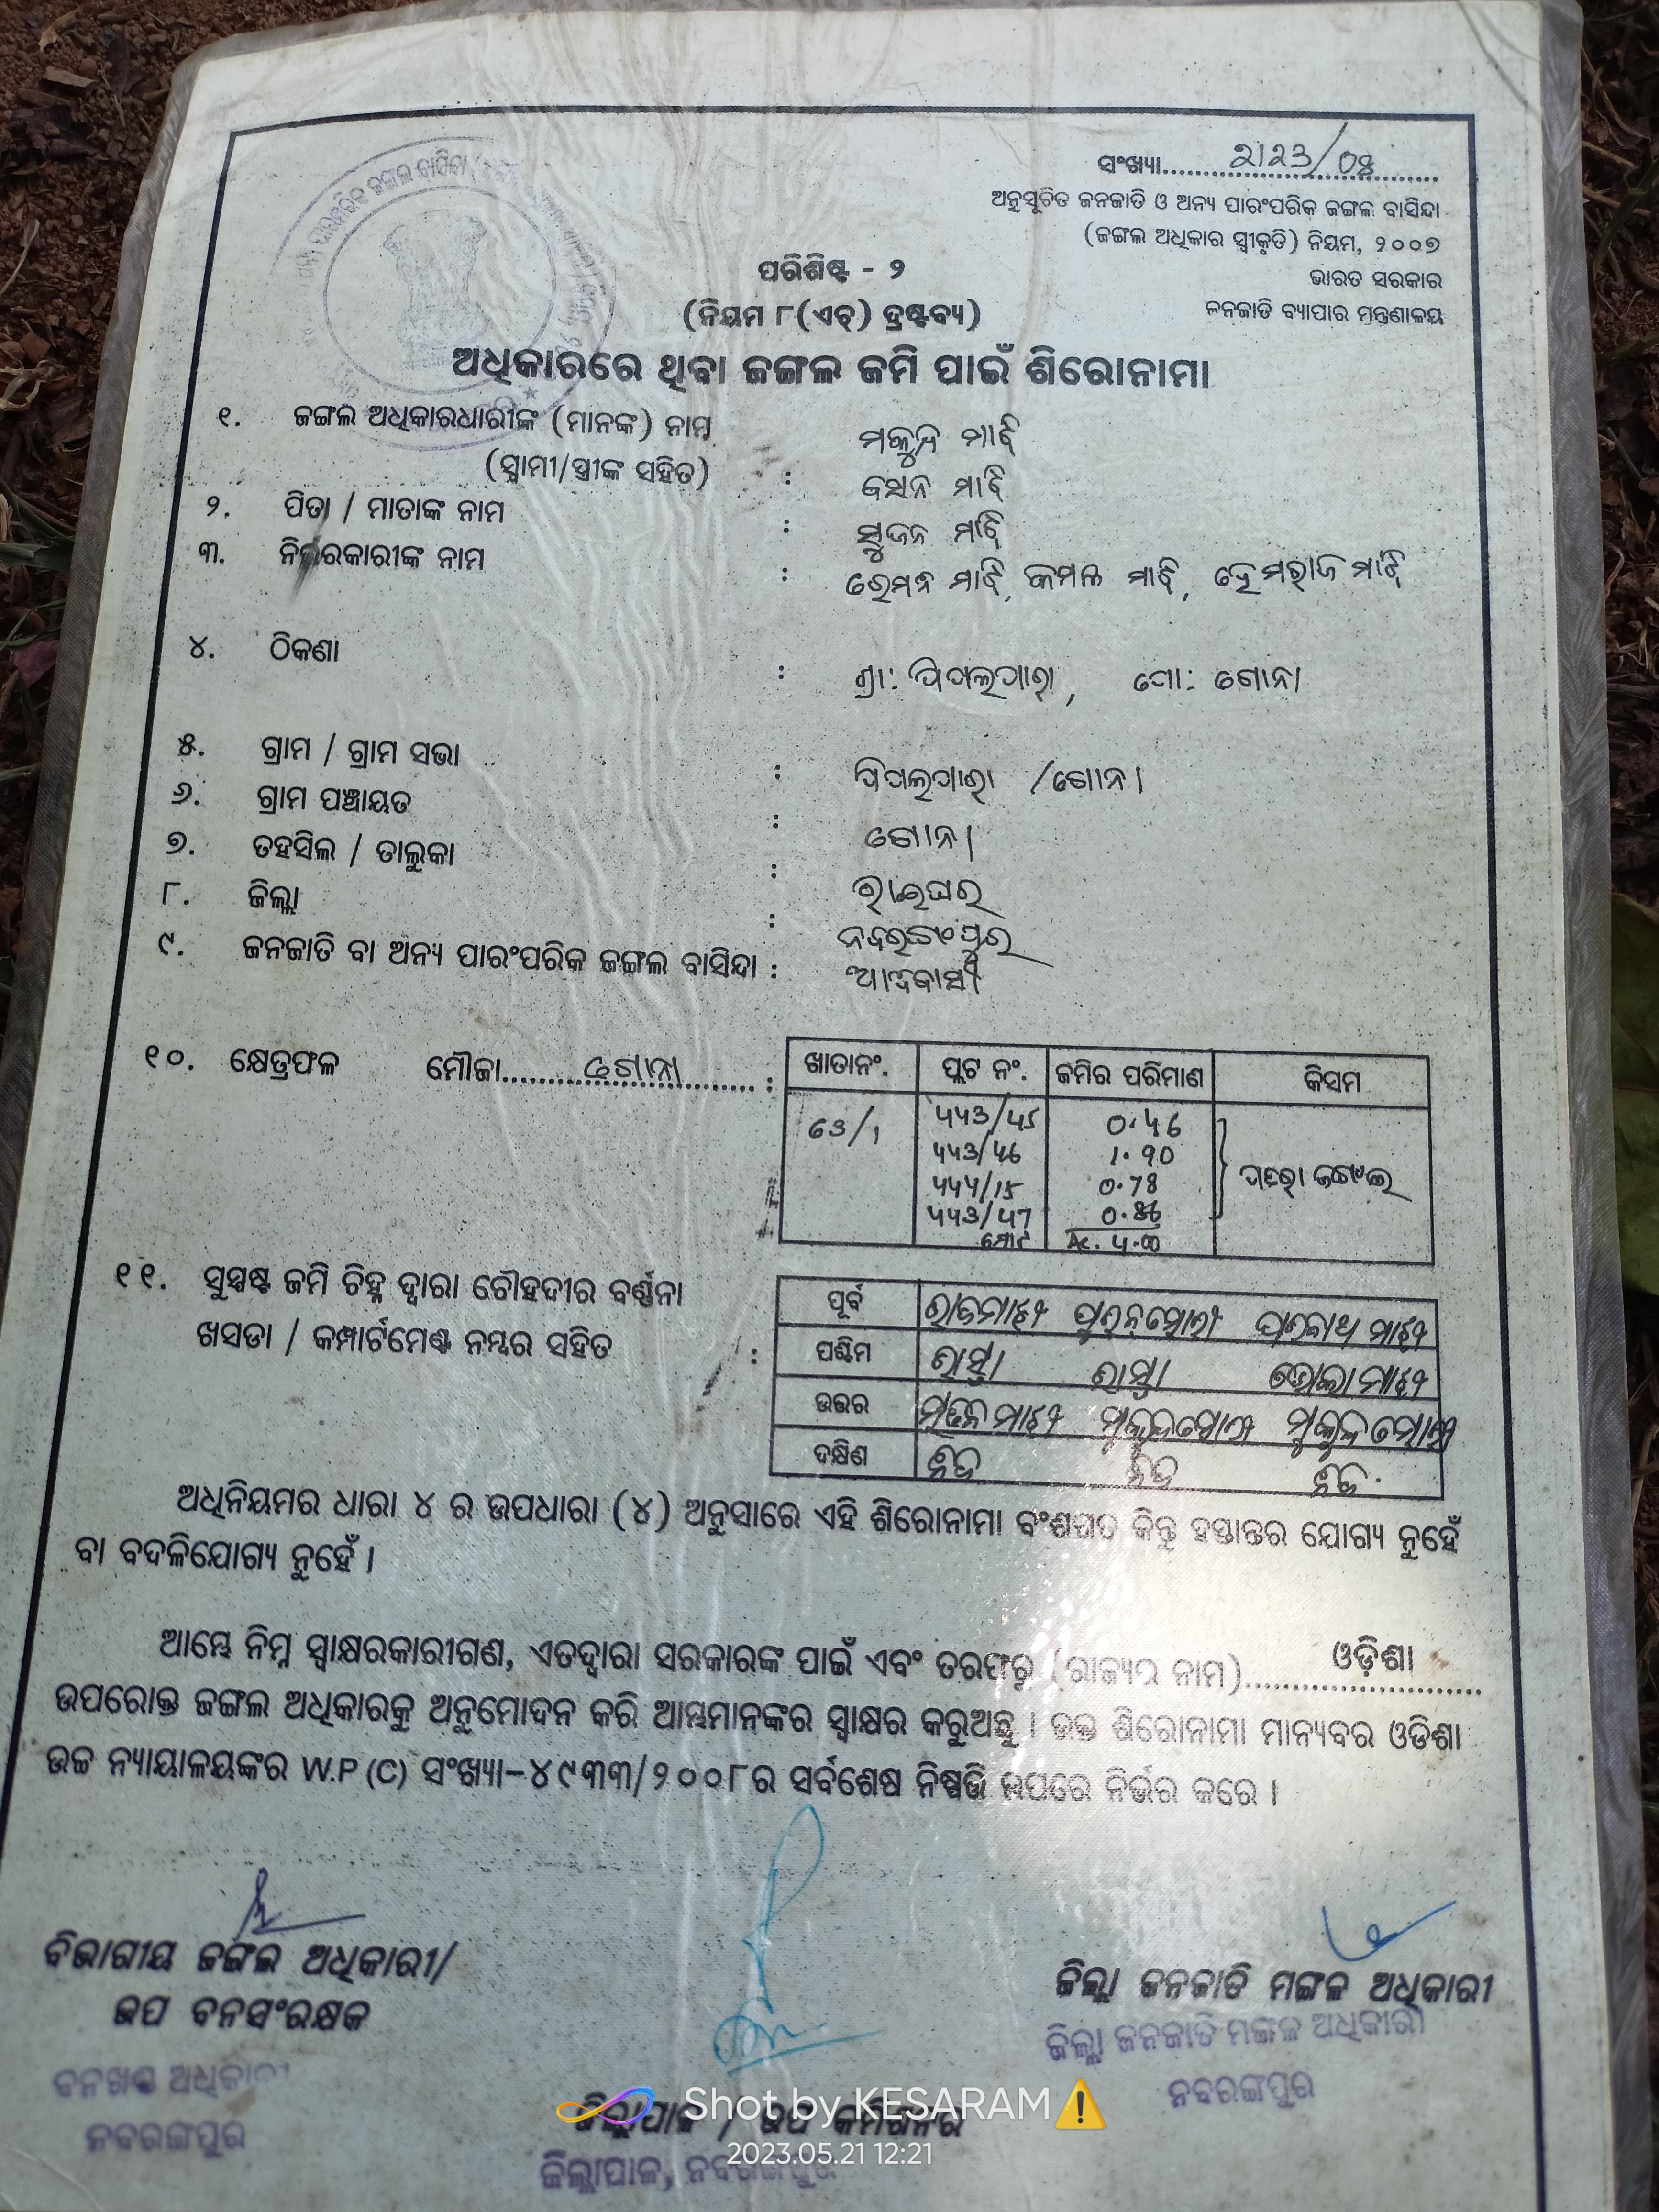 ସଂଖ୍ୟା........ ୨୧୨୩/୦୫
ଅନୁସୂଚିତ ଜନଜାତି ଓ ଅନ୍ୟ ପାରଂପରିକ ଜଙ୍ଗଲ ବାସିନ୍ଦା
(ଜଙ୍ଗଲ ଅଧିକାର ସ୍ବୀକୃତି) ନିୟମ, ୨୦୦୭
ଭାରତ ସରକାର
ଜନଜାତି ବ୍ୟାପାର ମନ୍ତ୍ରଣାଳୟ
ପରିଶିଷ୍ଟ - ୨
(ନିୟମ ୮(ଏଚ୍) ଦ୍ରଷ୍ଟବ୍ୟ)
ଅଧିକାରରେ ଥିବା ଜଙ୍ଗଲ ଜମି ପାଇଁ ଶିରୋନାମା
୧. ଜଙ୍ଗଲ ଅଧିକାରଧାରୀଙ୍କ (ମାନଙ୍କ) ନାମ ମକୁନ୍ଦ ମାଝି
(ସ୍ବାମୀ/ସ୍ତ୍ରୀଙ୍କ ସହିତ) : ମାଝି
୨. ପିତା / ମାତାଙ୍କ ନାମ : ସୁଜନ ମାଝି
୩. ନିର୍ଭରକାରୀଙ୍କ ନାମ : ହେମନ୍ତ ମାଝି, କମଳ ମାଝି, ହେମରାଜ ମାଝି
୪. ଠିକଣା : ଗ୍ରା: ପିପଲପାରା, ପୋ: ଗୋନା
୫. ଗ୍ରାମ / ଗ୍ରାମ ସଭା : ପିପଲପାରା /ଗୋନା
୬. ଗ୍ରାମ ପଞ୍ଚାୟତ : ଗୋନା
୭. ତହସିଲ / ତାଲୁକା : ରାଇଘର
୮. ଜିଲ୍ଲା : ନବରଙ୍ଗପୁର
୯. ଜନଜାତି ବା ଅନ୍ୟ ପାରଂପରିକ ଜଙ୍ଗଲ ବାସିନ୍ଦା : ଆଦିବାସୀ
୧୦. କ୍ଷେତ୍ରଫଳ ମୌଜା........ ଗୋନା :
ଖାତାନଂ. ପ୍ଲଟ ନଂ. ଜମିର ପରିମାଣ କିସମ
୫୫୩/୫୫ 0.56
୫୫୩/୫୬ 1.90
୫୫୫/୧୫ 0.78
୫୫୩/୫୭
ମୋଟ Ac. 4.00
୧୧. ସୁସ୍ପଷ୍ଟ ଜମି ଚିହ୍ନ ଦ୍ୱାରା ଚୌହଦୀର ବର୍ଣ୍ଣନା
ଖସଡା / କମ୍ପାର୍ଟମେଣ୍ଟ ନମ୍ବର ସହିତ :
ପୂର୍ବ ରାଜମାଝି
ପଶ୍ଚିମ ରାସ୍ତା ରାସ୍ତା ଭୋଲା ମାଝି
ଉତ୍ତର
ଦକ୍ଷିଣ ନିଜ ନିଜ ନିଜ
ଅଧିନିୟମର ଧାରା ୪ ର ଉପଧାରା (୪) ଅନୁସାରେ ଏହି ଶିରୋନାମା ବଂଶଗତ କିନ୍ତୁ ହସ୍ତାନ୍ତର ଯୋଗ୍ୟ ନୁହେଁ
ବା ବଦଳିଯୋଗ୍ୟ ନୁହେଁ ।
ଆମ୍ଭେ ନିମ୍ନ ସ୍ୱାକ୍ଷରକାରୀଗଣ, ଏତଦ୍ୱାରା ସରକାରଙ୍କ ପାଇଁ ଏବଂ ତରଫରୁ (ରାଜ୍ୟର ନାମ)........ ଓଡ଼ିଶା
ଉପରୋକ୍ତ ଜଙ୍ଗଲ ଅଧିକାରକୁ ଅନୁମୋଦନ କରି ଆମ୍ଭମାନଙ୍କର ସ୍ୱାକ୍ଷର କରୁଅଛୁ । ଉକ୍ତ ଶିରୋନାମା ମାନ୍ୟବର ଓଡିଶା
ଉଚ୍ଚ ନ୍ୟାୟାଳୟଙ୍କର W.P (C) ସଂଖ୍ୟା-୪୯୩୩/୨୦୦୮ର ସର୍ବଶେଷ ନିଷ୍ପତ୍ତି ଉପରେ ନିର୍ଭର କରେ ।
ବିଭାଗୀୟ ଜଙ୍ଗଲ ଅଧିକାରୀ/
ଉପ ବନସଂରକ୍ଷକ
ବନଖଣ୍ଡ ଅଧିକାରୀ
ନବରଙ୍ଗପୁର
ଜିଲ୍ଲା ଜନଜାତି ମଙ୍ଗଳ ଅଧିକାରୀ
ଜିଲ୍ଲା ଜନଜାତି ମଙ୍ଗଳ ଅଧିକାରୀ
ନବରଙ୍ଗପୁର
ଜିଲ୍ଲାପାଳ / ଉପ କମିଶନର
ଜିଲ୍ଲାପାଳ, ନବରଙ୍ଗପୁର
Shot by KESARAM⚠
2023.05.21 12:21